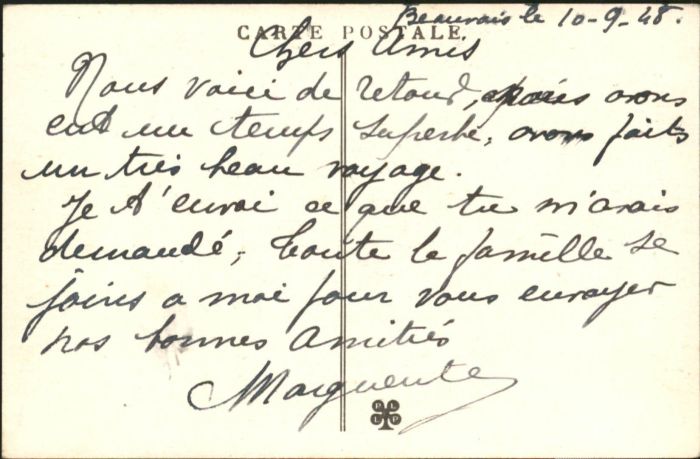 Beauvais le 10-9-48.
CARTE POSTALE
Chers Amis
Nous voici de retour, avons
eut un temps superbe, avons faits
un très beau voyage.
Je t'envoi ce que tu m'avais
demandé, toute la famille se
joins a moi pour vous envoyer
nos bonnes amitiés
Marguerite
P L L P